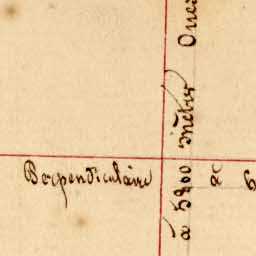 Perpendiculaire
à 5800 mètres
à 6